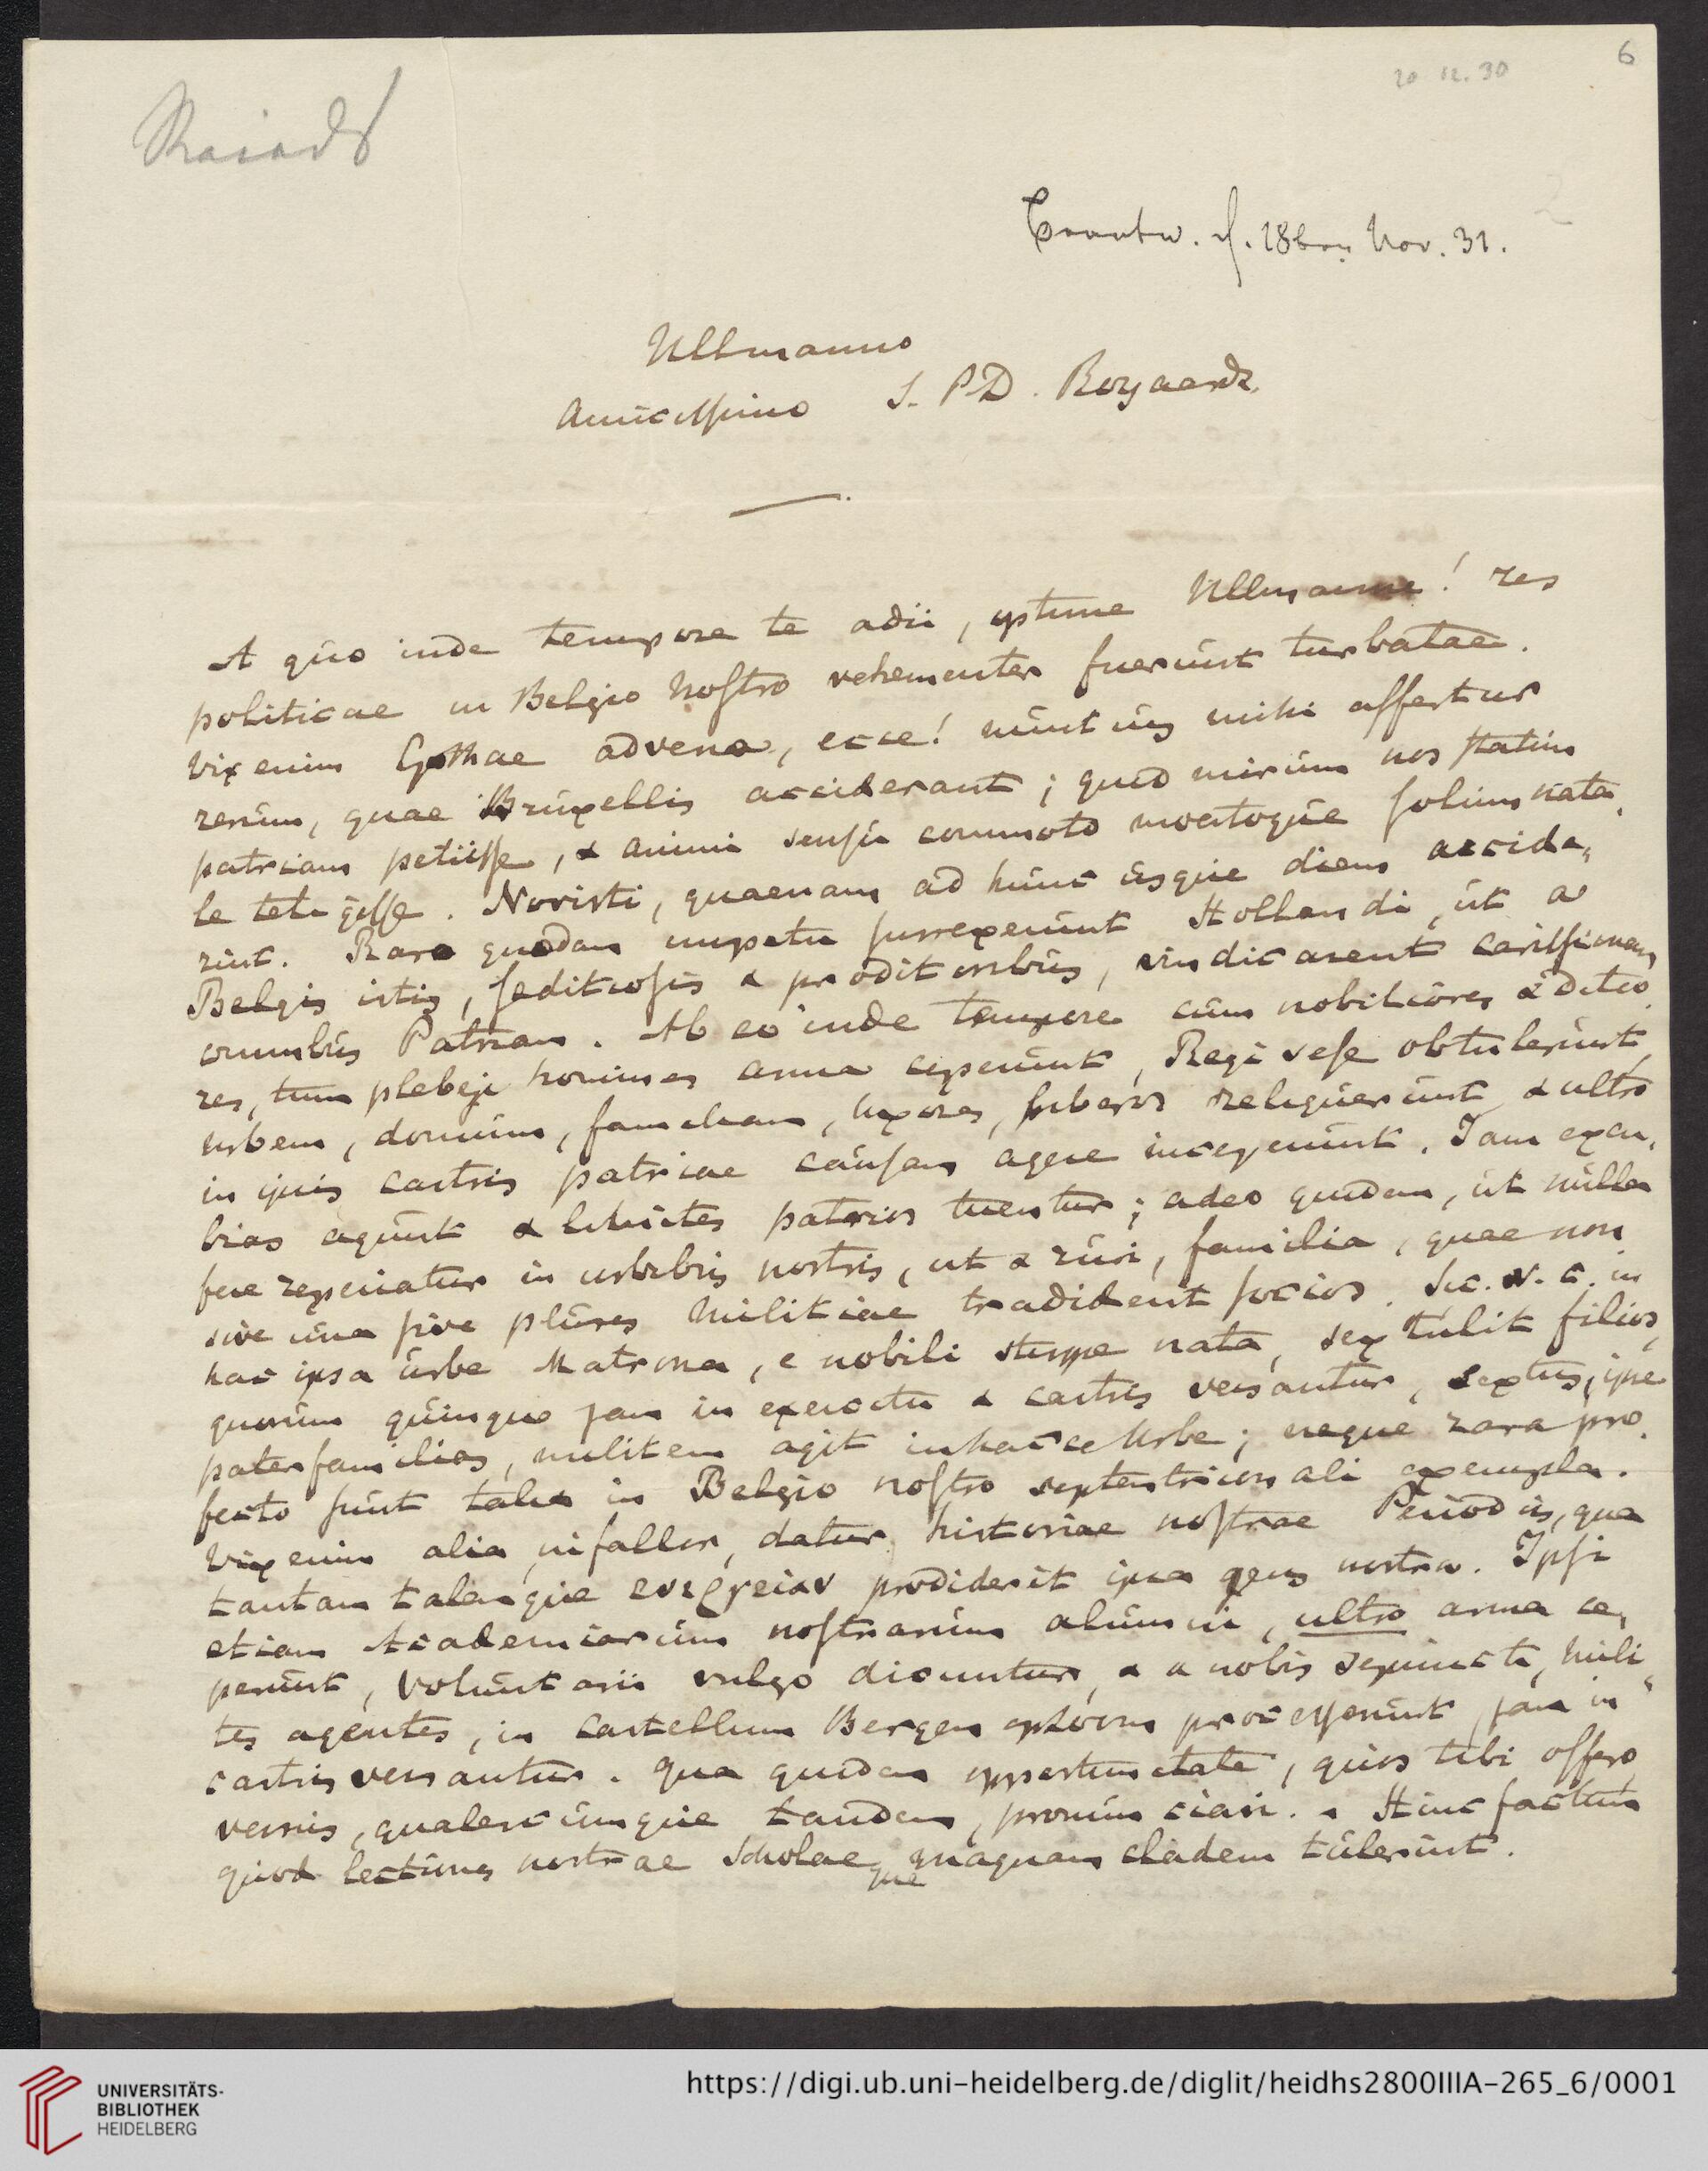 6
20 12. 30
Beantw. d. 18ten Nov. 31.
Ullmanno
Amicissimo S. P D. Royaards.
A quo inde tempore te adii, optime Ullmanne! res
politicae in Belgio nostro vehementer fuerunt turbatae.
Vix enim Gothae advena, ecce! nuntius mihi affertur
rerum, quae Bruxellis acciderant; quid mirum nos statim
patriam petiisse, & animi sensu commoto motoque solum nata-
le tetigisse. Noristi, quaenam ad hunc usque diem accide-
rint. Raro quodam impetu surrexerunt Hollandi, ut a
Belgis istis, seditiosis & proditoribus, vindicarent carissimam
omnibus Patriam. Ab eo inde tempore cum nobiliores & ditio-
res, tum plebeji homines arma ceperunt, Regi sese obtulerunt,
urbem, domum, familiam, uxores, liberos reliquerunt & ultro
in ipsis castris patriae causam agere inceperunt. Iam excu-
bias agunt & limites patrios tuentur; adeo quidem, ut nulla
fere reperiatur in urbibus nostris, ut & ruri, familia, quae non
sive unum sive plures militiae tradiderit socios. Sic. v. c. in
hac ipsa urbe Matrona, e nobili stirpe nata, sex tulit filios,
quorum quinque jam in exercitu & castris versantur, sextus, ipse
paterfamilias, militem agit in hacce Urbe; neque rara pro-
fecto sunt talia in Belgio nostro septentrionali exempla.
Vix enim alia, ni fallor, datur historiae nostrae Periodus, qua
tantam talemque ενεργειαν prodiderit ipsa gens nostra. Ipsi
etiam Academiarum nostrarum alumni, ultro arma ce-
perunt, Voluntarii vulgo dicuntur, & a nobis sejuncti, mili-
tes agentes, in castellum Bergen opZoom processerunt, jam in
castris versantur. Qua quidem opportunitate, quos tibi offero
versus, qualescumque tandem, pronunciavi. Hinc factum
quod lectiones nostrae Scholaeque magnam cladem tulerunt.
UNIVERSITÄTS-
BIBLIOTHEK
HEIDELBERG
https://digi.ub.uni-heidelberg.de/diglit/heidhs2800IIIA-265_6/0001